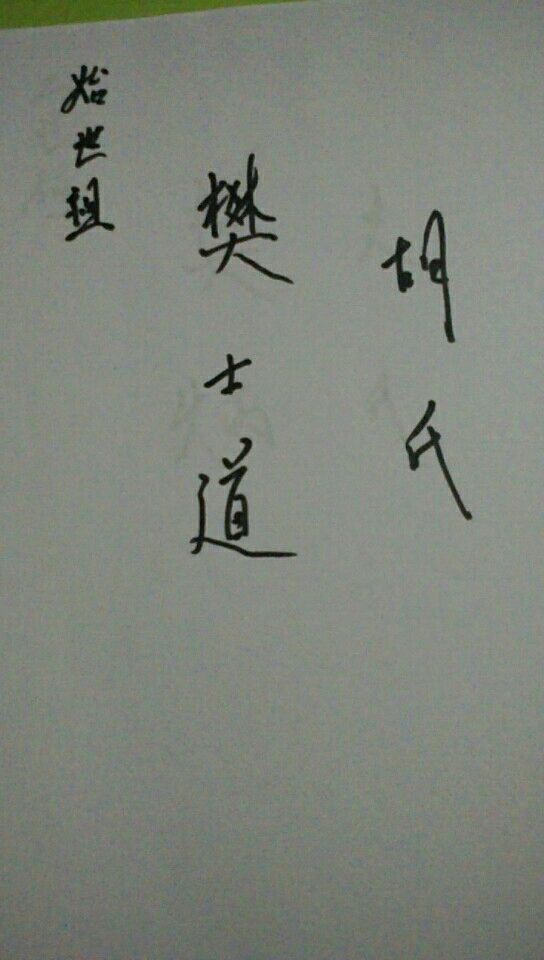 始世祖
樊士道
胡氏